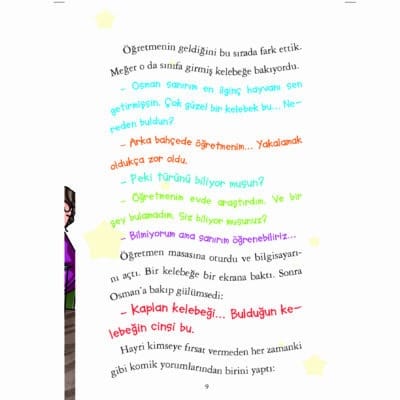 Öğretmenin geldiğini bu sırada fark ettik.
Meğer o da sınıfa girmiş kelebeğe bakıyordu.
– Osman sanırım en ilginç hayvanı sen
getirmişsin. Çok güzel bir kelebek bu... Ne-
reden buldun?
– Arka bahçede öğretmenim... Yakalamak
oldukça zor oldu.
– Peki türünü biliyor musun?
– Öğretmenim evde araştırdım. Ve bir
şey bulamadım. Siz biliyor musunuz?
– Bilmiyorum ama sanırım öğrenebiliriz...
Öğretmen masasına oturdu ve bilgisayarı-
nı açtı. Bir kelebeğe bir ekrana baktı. Sonra
Osman'a bakıp gülümsedi:
– Kaplan kelebeği... Bulduğun ke-
lebeğin cinsi bu.
Hayri kimseye fırsat vermeden her zamanki
gibi komik yorumlarından birini yaptı:
9